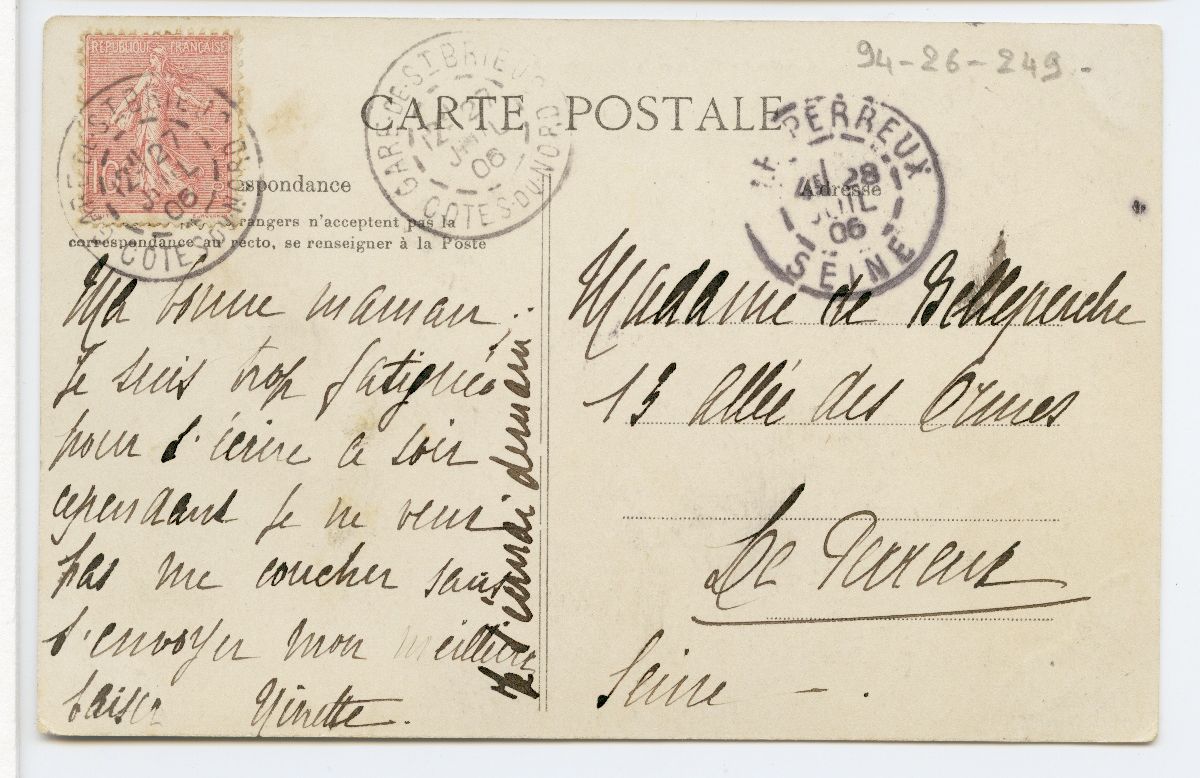 94-26-249-
RÉPUBLIQUE FRANÇAISE
GARE DE ST BRIEUC
27
06
CÔTES-DU-NORD
GARE DE ST BRIEUC
12
27
06
CÔTES-DU-NORD
LE PERREUX
28
JUIL
06
SEINE
CARTE POSTALE
spondance
rangers n'acceptent pas la
correspondance au recto, se renseigner à la Poste
Ma bonne maman,
Je suis trop fatiguée
pour t'écrire ce soir
cependant je ne veux
pas me coucher sans
t'envoyer mon meilleur
baiser Ninette.
je t'écrirai demain
Adresse
Madame de Belleperche
13 allée des Ormes
Le Perreux
Seine - .